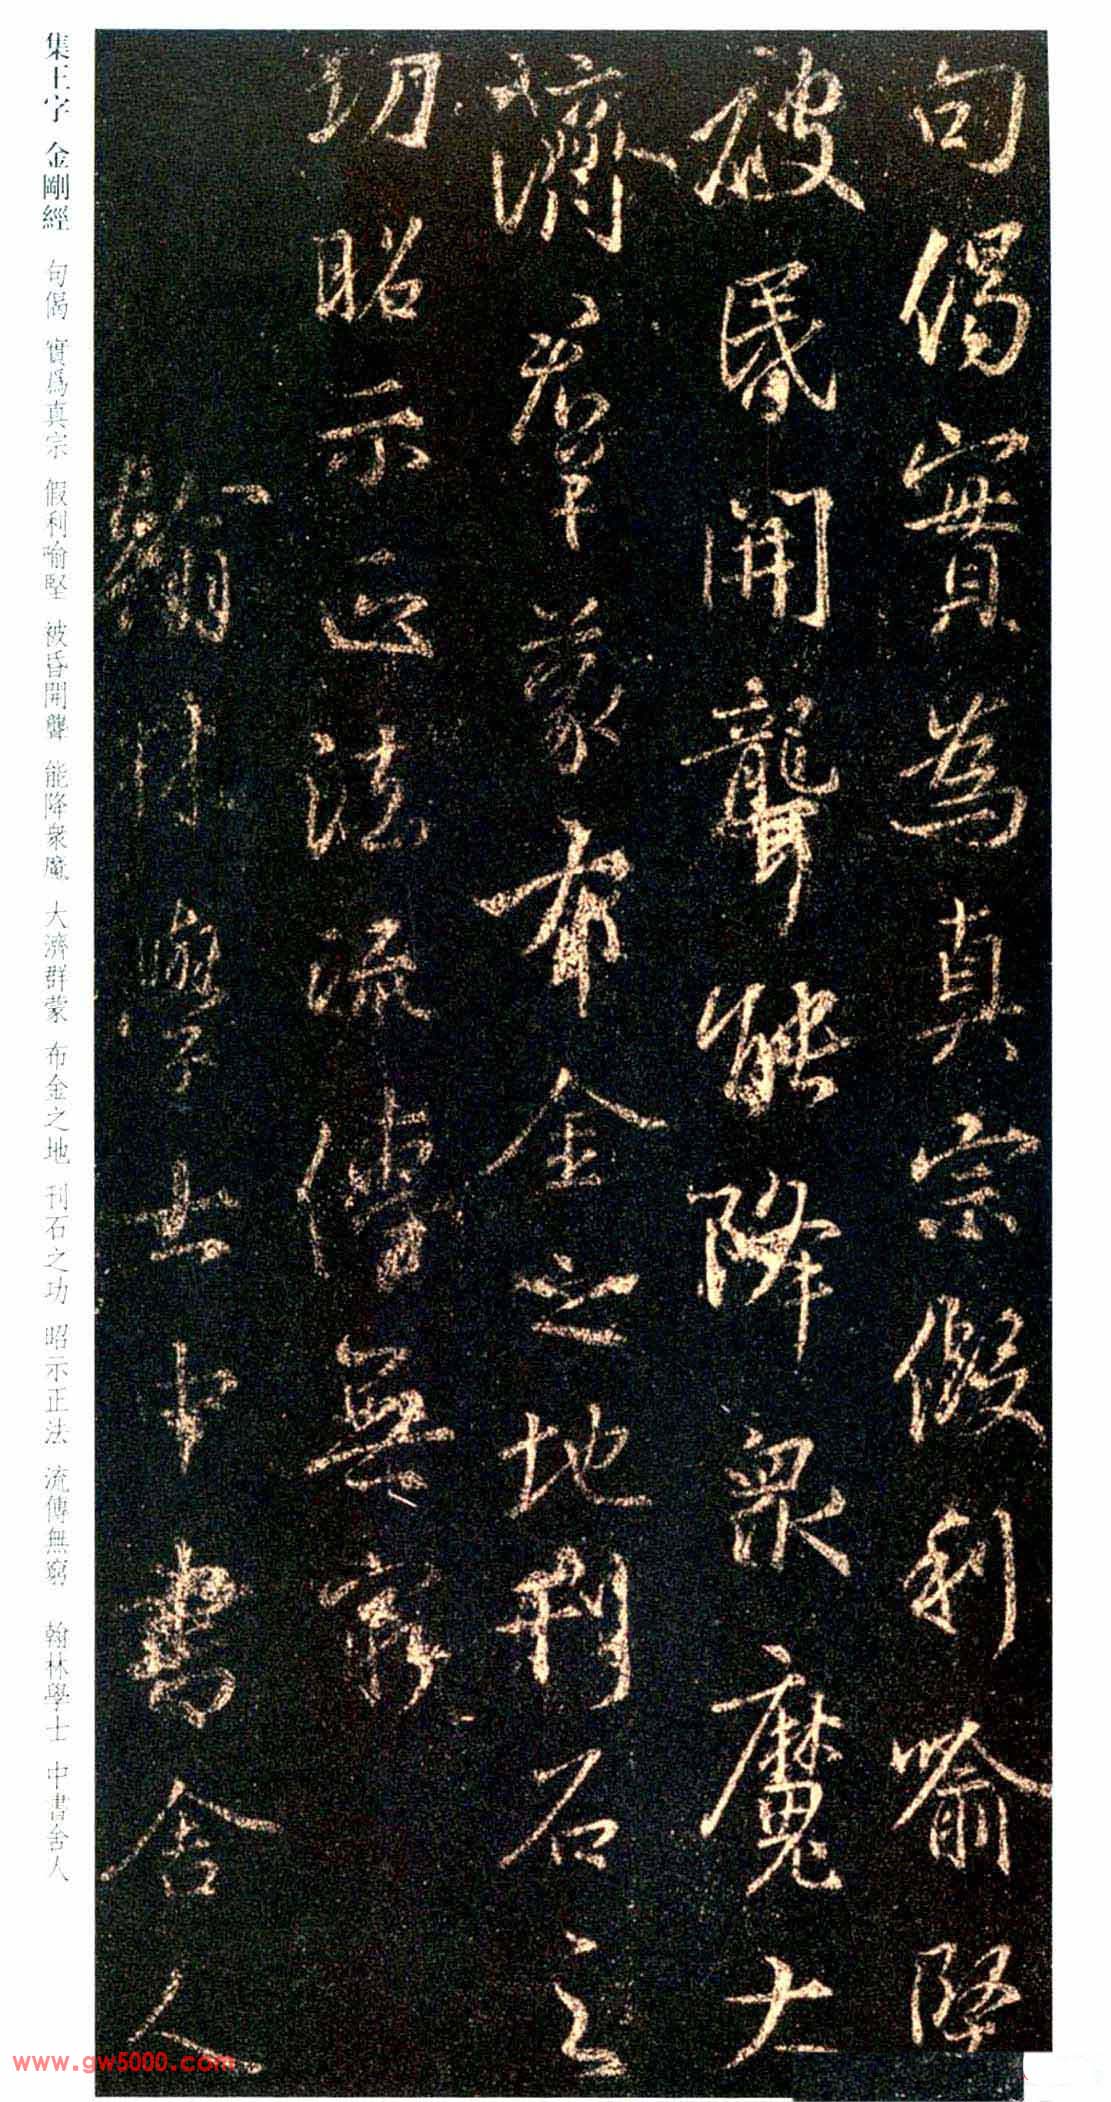 句偈實為真宗假利喻堅
破昏開聾能降衆魔大
濟羣蒙布金之地刊石之
功昭示正法流傳無窮
翰林學士中書舍人
集王字 金剛經 句偈 實爲真宗 假利喻堅 被昏開聾 能降衆魔 大濟群蒙 布金之地 刊石之功 昭示正法 流傳無窮 翰林學士 中書舍人
www.gw5000.com